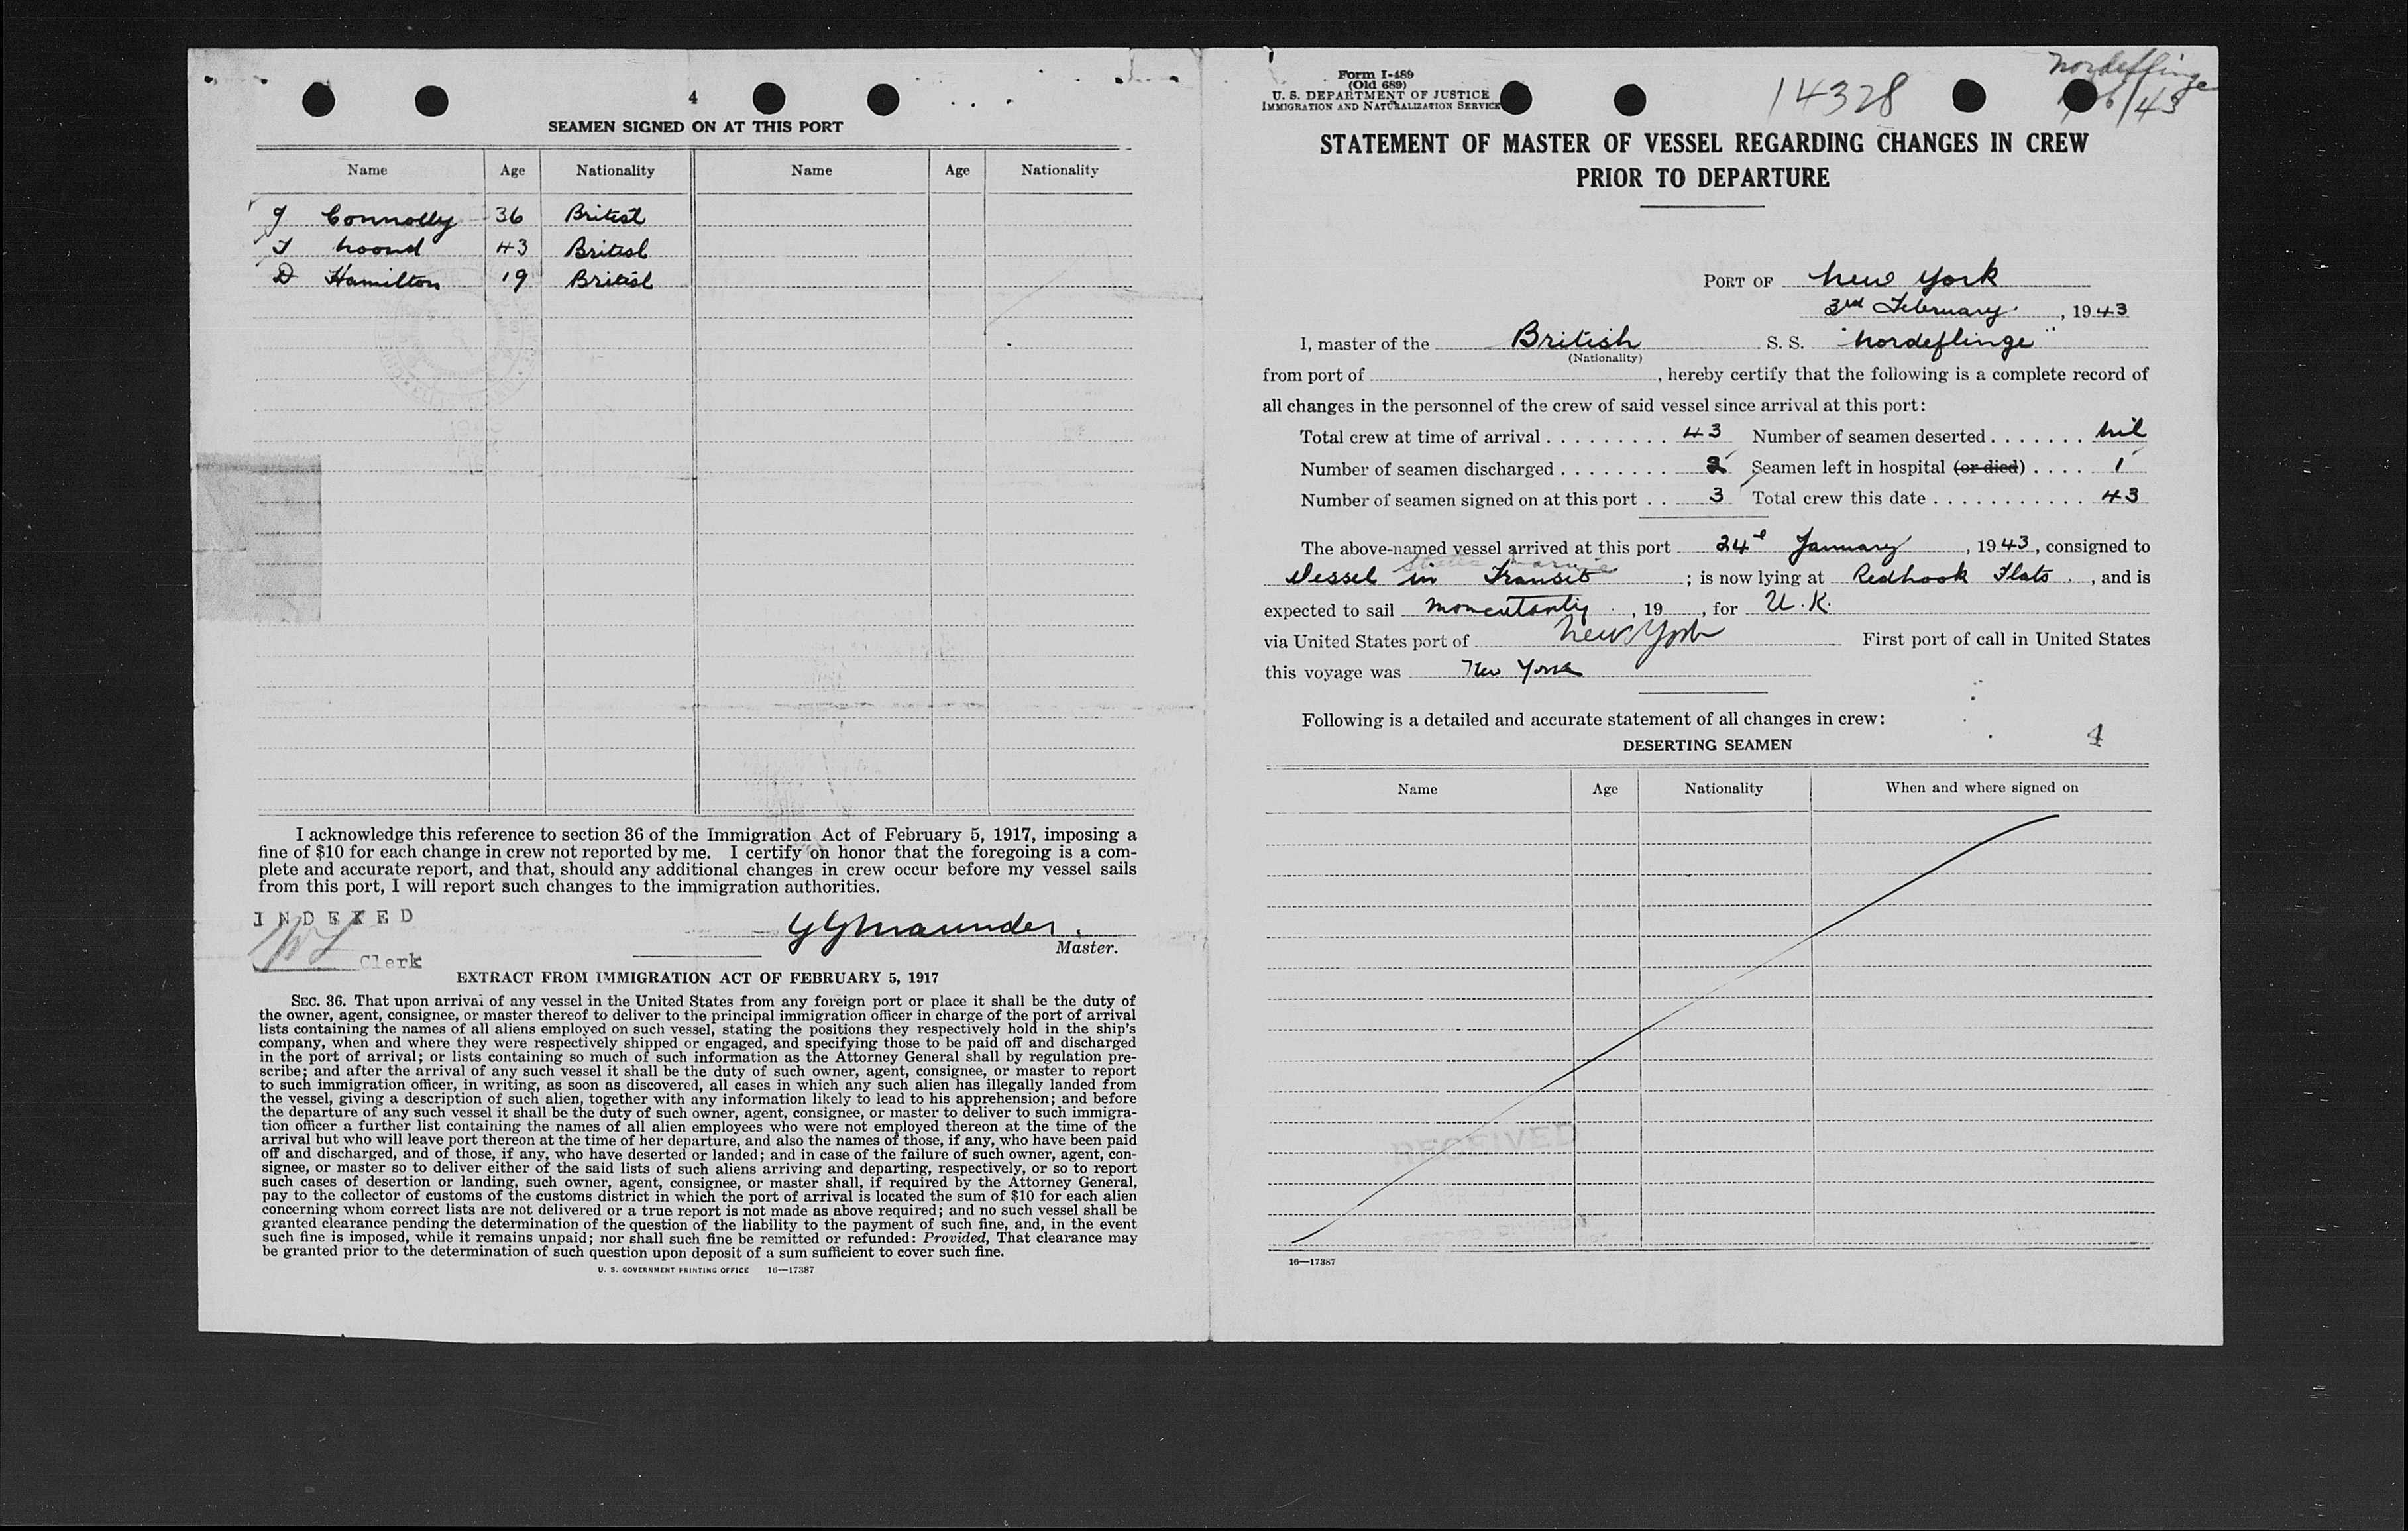 4
SEAMEN SIGNED ON AT THIS PORT
Name Age Nationality Name Age Nationality
J Connolly 36 British
43 British
D Hamilton 19 British
I acknowledge this reference to section 36 of the Immigration Act of February 5, 1917, imposing a
fine of $10 for each change in crew not reported by me. I certify on honor that the foregoing is a com-
plete and accurate report, and that, should any additional changes in crew occur before my vessel sails
from this port, I will report such changes to the immigration authorities.
INDEXED
G G Maunder.
Master.
Clerk
EXTRACT FROM IMMIGRATION ACT OF FEBRUARY 5, 1917
SEC. 36. That upon arrival of any vessel in the United States from any foreign port or place it shall be the duty of
the owner, agent, consignee, or master thereof to deliver to the principal immigration officer in charge of the port of arrival
lists containing the names of all aliens employed on such vessel, stating the positions they respectively hold in the ship's
company, when and where they were respectively shipped or engaged, and specifying those to be paid off and discharged
in the port of arrival; or lists containing so much of such information as the Attorney General shall by regulation pre-
scribe; and after the arrival of any such vessel it shall be the duty of such owner, agent, consignee, or master to report
to such immigration officer, in writing, as soon as discovered, all cases in which any such alien has illegally landed from
the vessel, giving a description of such alien, together with any information likely to lead to his apprehension; and before
the departure of any such vessel it shall be the duty of such owner, agent, consignee, or master to deliver to such immigra-
tion officer a further list containing the names of all alien employees who were not employed thereon at the time of the
arrival but who will leave port thereon at the time of her departure, and also the names of those, if any, who have been paid
off and discharged, and of those, if any, who have deserted or landed; and in case of the failure of such owner, agent, con-
signee, or master so to deliver either of the said lists of such aliens arriving and departing, respectively, or so to report
such cases of desertion or landing, such owner, agent, consignee, or master shall, if required by the Attorney General,
pay to the collector of customs of the customs district in which the port of arrival is located the sum of $10 for each alien
concerning whom correct lists are not delivered or a true report is not made as above required; and no such vessel shall be
granted clearance pending the determination of the question of the liability to the payment of such fine, and, in the event
such fine is imposed, while it remains unpaid; nor shall such fine be remitted or refunded: Provided, That clearance may
be granted prior to the determination of such question upon deposit of a sum sufficient to cover such fine.
U. S. GOVERNMENT PRINTING OFFICE 16—17387
Form I-489
(Old 689)
U. S. DEPARTMENT OF JUSTICE
IMMIGRATION AND NATURALIZATION SERVICE
14328
Nordeflinge
6/43
STATEMENT OF MASTER OF VESSEL REGARDING CHANGES IN CREW
PRIOR TO DEPARTURE
PORT OF New York
3rd February. , 1943
I, master of the British S. S. "Nordeflinge"
(Nationality)
from port of , hereby certify that the following is a complete record of
all changes in the personnel of the crew of said vessel since arrival at this port:
Total crew at time of arrival 43 Number of seamen deserted Nil
Number of seamen discharged 2 Seamen left in hospital (or died) 1
Number of seamen signed on at this port 3 Total crew this date 43
The above-named vessel arrived at this port 24th January , 1943, consigned to
States Marine
Vessel in Transit ; is now lying at Redhook Flats , and is
expected to sail momentarily , 19 , for U.K.
via United States port of New York First port of call in United States
this voyage was New York
Following is a detailed and accurate statement of all changes in crew:
DESERTING SEAMEN
4
Name Age Nationality When and where signed on
RECEIVED
DIVISION
16—17387